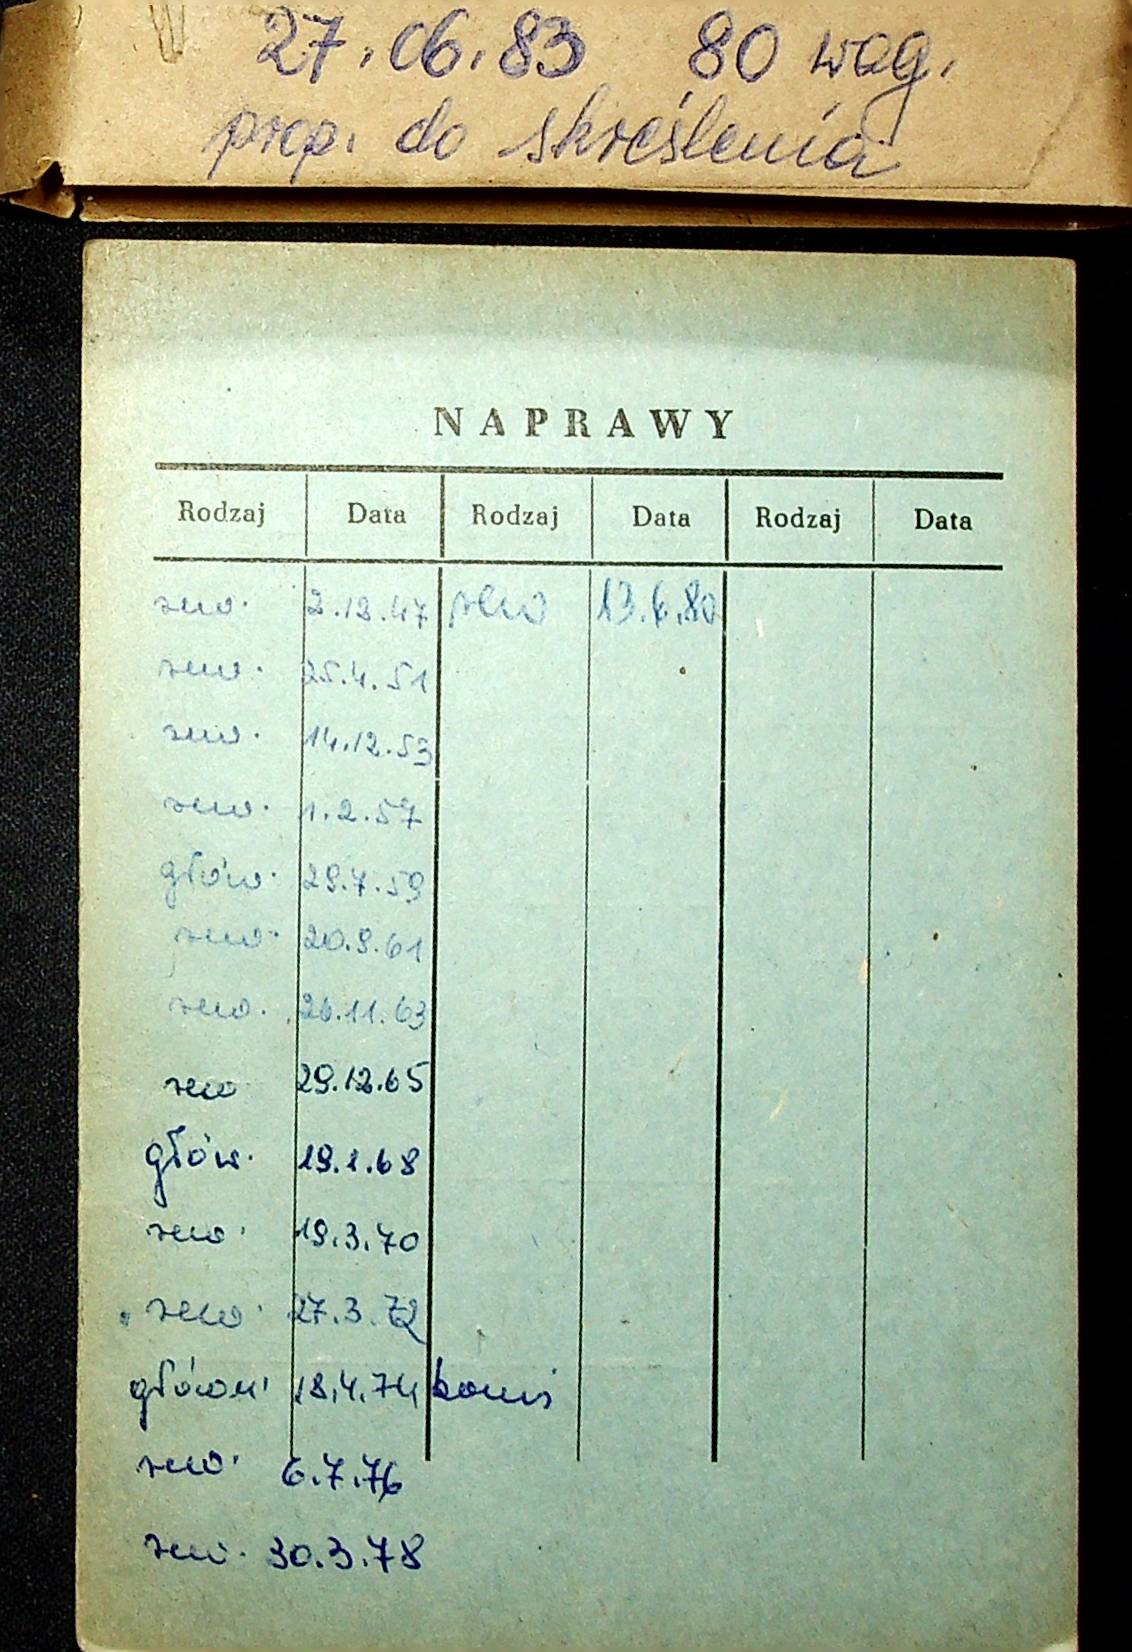 27.06.83 80 wag.
prop. do skreślenia
NAPRAWY
Rodzaj Data Rodzaj Data Rodzaj Data
rew. 2.12.47 rew 13.6.80
rew. 25.4.51
rew. 14.12.53
rew. 1.2.57
głów. 29.7.59
rew. 20.9.61
rew. 26.11.63
rew 29.12.65
głów. 19.1.68
rew. 19.3.70
rew. 27.3.72
główn. 18.4.74
rew. 6.7.76
rew. 30.3.78